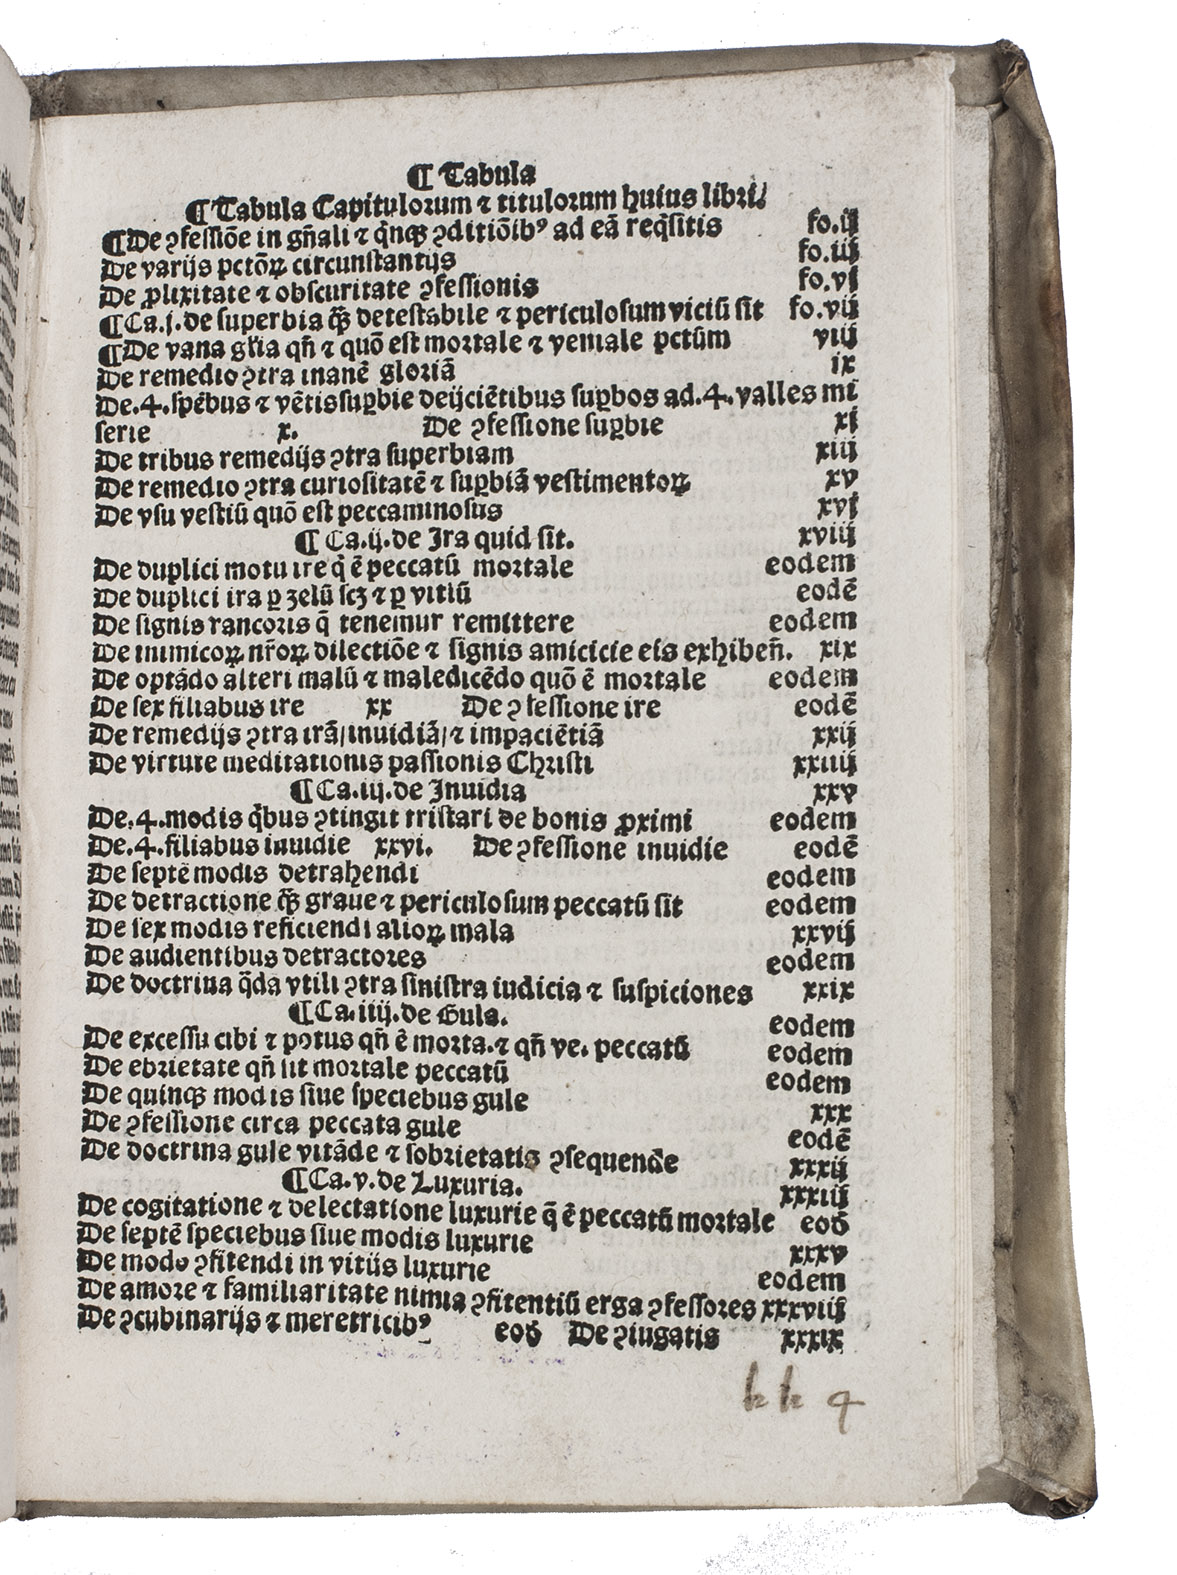 ¶ Tabula
¶ Tabula Capitulorum ⁊ titulorum huius libri.
¶ De ꝯfessiõe in gñali ⁊ q̃nqꝫ ꝯditiõibꝰ ad eã reqͥsitis fo.ij
De varijs pctõꝝ circunstantijs fo.iij
De ꝓlixitate ⁊ obscuritate ꝯfessionis fo.vj
¶ Ca.j. de superbia qͣꝫ detestabile ⁊ periculosum viciũ sit fo.vij
¶ De vana gl̃ia qñ ⁊ quõ est mortale ⁊ veniale pctũm viij
De remedio ꝯtra inanẽ gloriã ix
De.4.spẽbus ⁊ vẽtis suꝑbie deijciẽtibus suꝑbos ad.4.valles mi
serie x. De ꝯfessione suꝑbie xj
De tribus remedijs ꝯtra superbiam xiij
De remedio ꝯtra curiositatẽ ⁊ suꝑbiã vestimentoꝝ xv
De vsu vestiũ quõ est peccaminosus xvj
¶ Ca.ij.de Ira quid sit. xviij
De duplici motu ire q̃ ẽ peccatũ mortale eodem
De duplici ira ꝑ zelũ scꝫ ⁊ ꝑ vitiũ eodẽ
De signis rancoris q̃ tenemur remittere eodem
De inimicoꝝ nr̃oꝝ dilectiõe ⁊ signis amicicie eis exhibeñ. xix
De optãdo alteri malũ ⁊ maledicẽdo quõ ẽ mortale eodem
De sex filiabus ire xx De ꝯfessione ire eodẽ
De remedijs ꝯtra irã/inuidiã/⁊ impaciẽtiã xxij
De virtute meditationis passionis Christi xxiiij
¶ Ca.iij.de Inuidia xxv
De.4.modis qͥbus ꝯtingit tristari de bonis ꝓximi eodem
De.4.filiabus inuidie xxvi. De ꝯfessione inuidie eodẽ
De septẽ modis detrahendi eodem
De detractione qͣꝫ graue ⁊ periculosum peccatũ sit eodem
De sex modis reficiendi alioꝝ mala xxvij
De audientibus detractores eodem
De doctrina q̃da vtili ꝯtra sinistra iudicia ⁊ suspiciones xxix
¶ Ca.iiij.de Gula. eodem
De excessu cibi ⁊ potus qñ ẽ morta.⁊ qñ ve. peccatũ eodem
De ebrietate qñ sit mortale peccatũ eodem
De quinqꝫ modis siue speciebus gule xxx
De ꝯfessione circa peccata gule eodẽ
De doctrina gule vitãde ⁊ sobrietatis ꝯsequende xxxij
¶ Ca.v.de Luxuria. xxxiij
De cogitatione ⁊ delectatione luxurie q̃ ẽ peccatũ mortale eod̃
De septẽ speciebus siue modis luxurie xxxv
De modo ꝯfitendi in vitijs luxurie eodem
De amore ⁊ familiaritate nimia ꝯfitentiũ erga ꝯfessores xxxviij
De ꝯcubinarijs ⁊ meretricibꝰ eod̃ De ꝯiugatis xxxix
kk 4